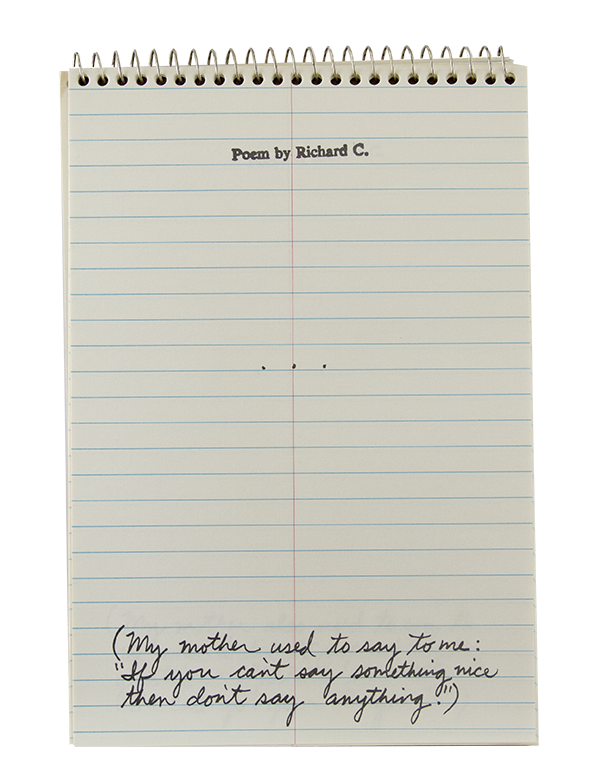 Poem by Richard C.
. . .
(My mother used to say to me:
"If you can't say something nice
then don't say anything.")